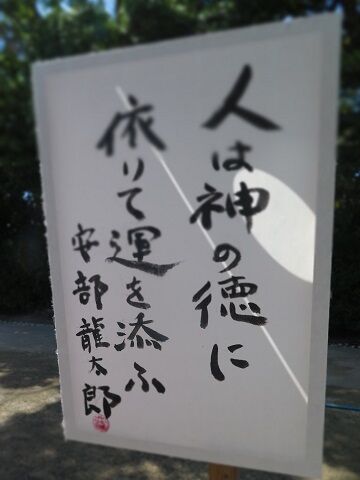 人は神の徳に
依りて運を添ふ
安部龍太郎